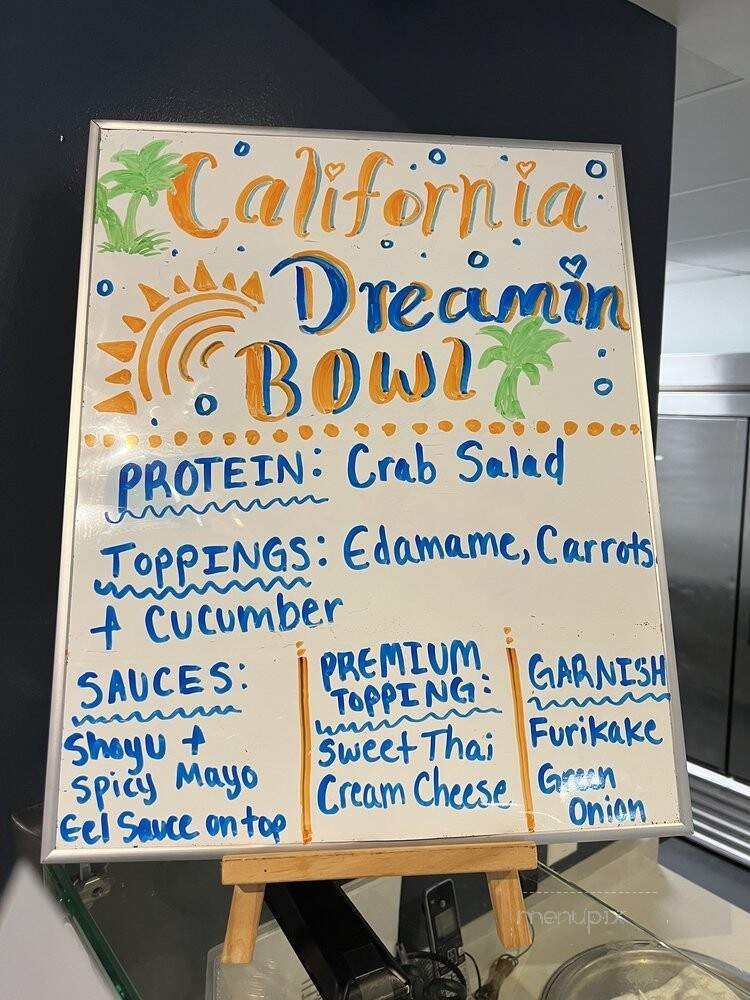 California
Dreamin
Bowl
PROTEIN: Crab Salad
TOPPINGS: Edamame, Carrots,
+ Cucumber
SAUCES:
Shoyu +
Spicy Mayo
Eel Sauce on top
PREMIUM
TOPPING:
Sweet Thai
Cream Cheese
GARNISH
Furikake
Green
Onion
menupix